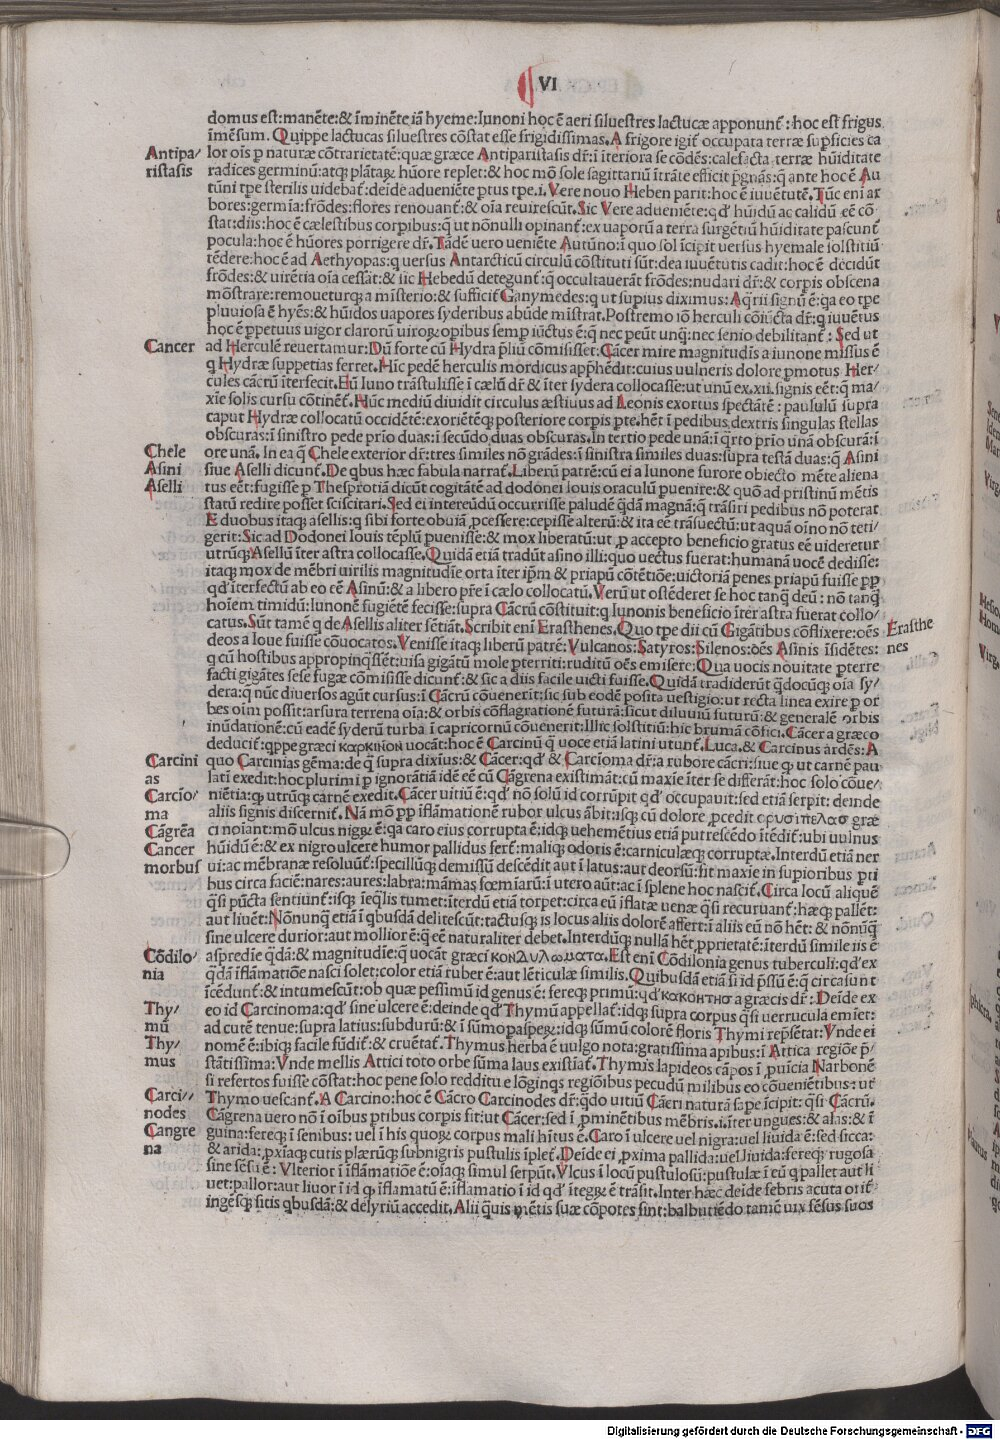 VI
domus est: manēte: & īminēte iā hyeme: Iunoni hoc ē aeri siluestres lactucæ apponunt̄: hoc est frigus
īmēsum. Quippe lactucas siluestres cōstat esse frigidissimas. A frigore igit̄ occupata terræ supficies ca
Antipa/
ristasis
lor oīs p naturæ cōtrarietatē: quæ græce Antiparistasis dr̄: ī īteriora se cōdēs: calefacta terræ hūiditate
radices germinū: atq; plātaꝝ hūore replet: & hoc mō sole sagittariū ītrāte efficit p̄gnās: q̄ ante hoc ē Au
tūni tpe sterilis uidebat̄: deīde adueniēte ptus tpe .i. Vere nouo Heben parit: hoc ē iuuētutē. Tūc enī ar
bores: germīa: frōdes: flores renouant̄: & oīa reuirescūt. Sic Vere adueniēte: qd' hūidū ac calidū eē cō
stat: diis: hoc ē cælestibus corpibus: q̄ ut nōnulli opinant̄: ex uaporū a terra surgētiū hūiditate pascunt̄
pocula: hoc ē hūores porrigere dr̄. Tādē uero ueniēte Autūno: ī quo sol īcipit uersus hyemale solstitiū
tēdere: hoc ē ad Aethyopas: q uersus Antarcticū circulū cōstituti sūt: dea iuuētutis cadit: hoc ē decidūt
frōdes: & uirētia oīa cessāt: & sic Hebedū detegunt̄: q̄ occultauerāt frōdes: nudari dr̄: & corpis obscena
mōstrare: remoueturq; a misterio: & sufficit̄ Ganymedes: q ut supius diximus: Aq̄rii signū ē: qa eo tpe
pluuiosa ē hyēs: & hūidos uapores syderibus abūde mistrat. Postremo iō herculi cōiūcta dr̄: q iuuētus
hoc ē ppetuus uigor clarorū uiroꝝ: opibus semp iūctus ē: q̄ nec peūt unq̄: nec senio debilitant̄: Sed ut
Cancer
ad Herculē reuertamur: Dū forte cū Hydra p̄liū cōmisisset: Cācer mire magnitudīs a iunone missus ē
q Hydræ suppetias ferret. Hic pedē herculis mordicus app̄hēdit: cuius uulneris dolore pmotus Her/
cules cācrū iterfecit. Eū Iuno trāstulisse ī cælū dr̄ & iter sydera collocasse: ut unū ex .xii. signis eēt: q̄ ma/
xie solis cursu cōtinēt̄. Hūc mediū diuidit circulus æstiuus ad Leonis exortus spectātē: paululū supra
caput Hydræ collocatū occidētē: exoriētēq; posteriore corpis pte. hēt ī pedibus dextris singulas stellas
obscuras: ī sinistro pede prio duas: ī secūdo duas obscuras. In tertio pede unā: ī q̄rto prio unā obscurā: ī
Chele
ore unā. In ea q̄ Chele exterior dr̄: tres similes nō grādes: ī sinistra similes duas: supra testā duas: q̄ Asini
Asini
siue Aselli dicunt̄. De qbus hæc fabula narrat̄. Liberū patrē: cū ei a Iunone furore obiecto mēte aliena
Aselli
tus eēt: fugisse p Thesprotiā dicūt cogitātē ad dodonei Iouis oraculū puenire: & quō ad pristinū mētis
statū redire posset sciscitari. Sed ei intereūdū occurrisse paludē q̄dā magnā: q̄ trāsiri pedibus nō poterat
E duobus itaq; asellis: q sibi forte obuiā pcessere: cepisse alterū: & ita eē trāsuectū: ut aquā oīno nō teti/
gerit: Sic ad Dodonei Iouis tēplū puenisse: & mox liberatū: ut p accepto beneficio gratus eē uideretur
utrūq; Asellū iter astra collocasse. Quidā etiā tradūt asino illi: quo uectus fuerat: humanā uocē dedisse:
itaq; mox de mēbri uirilis magnitudīe orta īter ipm̄ & priapū cōtētiōe: uictoriā penes priapū fuisse pp
qd' iterfectū ab eo eē Asinū: & a libero pr̄e ī cælo collocatū. Verū ut ostēderet se hoc tanq̄ deū: nō tanq̄
hoīem timidū: Iunonē fugiētē fecisse: supra Cācrū cōstituit: q Iunonis beneficio īter astra fuerat collo/
catus. Sūt tamē q de Asellis aliter sētiāt. Scribit enī Erasthenes. Quo tpe dii cū Gigātibus cōflixere: oēs
Erasthe
nes
deos a Ioue fuisse cōuocatos. Venisse itaq; liberū patrē: Vulcanos: Satyros: Silenos: oēs Asinis isidētes:
q cū hostibus appropinq̄ssēt: uisa gigātū mole pterriti: ruditū oēs emisere: Qua uocis nouitate pterre
facti gigātes sese fugæ cōmisisse dicunt̄: & sic a diis facile uicti fuisse. Quidā tradiderūt q̄docūq; oīa sy/
dera: q̄ nūc diuersos agūt cursus: ī Cācrū cōuenerit: sic sub eodē posita uestigio: ut recta linea exire p or
bes oīm possit: arsura terrena oīa: & orbis cōflagrationē futurā: sicut diluuiū futurū: & generalē orbis
inūdationē: cū eadē syderū turba ī capricornū cōuenerit: Illic solstitiū: hic brumā cōfici. Cācer a græco
deducit̄: qppe græci ΚΑΡΚΙΝΟΝ uocāt: hoc ē Carcinū q̄ uoce etiā latini utunt̄. Luca. & Carcinus ardēs: A
Carcini
as
quo Carcinias gēma: de q̄ supra dixīus: & Cācer: qd' & Carcioma dr̄: a rubore cācri: siue q ut carnē pau
latī exedit: hoc plurimi p ignorātiā idē eē cū Cāgrena existimāt: cū maxie īter se differāt: hoc solo cōue/
Carcio/
ma
niētia: q utrūq; carnē exedit. Cācer uitiū ē: qd' nō solū id corrūpit qd' occupauit: sed etiā serpit: deinde
aliis signis discernit̄. Nā mō pp īflāmationē rubor ulcus ābit: isq; cū dolore pcedit ερυσιπελασ græ
Cāgrēa
ci noīant: mō ulcus nigꝝ ē: qa caro eius corrupta ē: idq; uehemētius etiā putrescēdo ītēdit̄: ubi uulnus
Cancer
morbus
hūidū ē: & ex nigro ulcere humor pallidus fert̄: maliq; odoris ē: carniculæq; corruptæ. Interdū etiā ner
ui: ac mēbranæ resoluūt̄: specillūq; demissū descēdit aut ī latus: aut deorsū: fit maxie in supioribus pti
bus circa faciē: nares: aures: labra: māmas fœmīarū: ī utero aūt: ac ī splene hoc nascit̄. Circa locū aliquē
q̄si pūcta sentiunt̄: isq; īeq̄lis tumet: īterdū etiā torpet: circa eū īflatæ uenæ q̄si recuruant̄: hæq; pallēt:
aut liuēt: Nōnunq̄ etiā ī qbusdā delitescūt: tactusq; is locus aliis dolorē affert: ī aliis eū nō hēt: & nōnūq̄
sine ulcere durior: aut mollior ē: q̄ eē naturaliter debet. Interdūq; nullā hēt pprietatē: īterdū simile iis ē
Cōdilo/
nia
aspredīe q̄dā: & magnitudīe: q̄ uocāt græci ΚΟΝΔΥΛΩΜΑΤΑ. Est enī Cōdilonia genus tuberculi: qd' ex
q̄dā īflāmatiōe nasci solet: color etiā ruber ē: aut lēticulæ similis. Quibusdā etiā si id pssū ē: q̄ circa sunt
īcēdunt̄: & intumescūt: ob quæ pessimū id genus ē: fereq; primū: qd' ΚΑΚΟΗΤΗΣ a græcis dr̄: Deīde ex
Thy/
mū
eo id Carcinoma: qd' sine ulcere ē: deinde qd' Thymū appellat̄: idq; supra corpus q̄si uerrucula emīet:
ad cutē tenue: supra latius: subdurū: & ī sūmo paspeꝝ: idq; sūmū colorē floris Thymi repsētat: Vnde ei
Thy/
mus
nomē ē: ibiq; facile fūdit̄: & cruētat̄. Thymus herba ē uulgo nota: gratissima apibus: ī Attica regiōe p̄/
stātissima: Vnde mellis Attici toto orbe sūma laus existiat̄. Thymis lapideos cāpos ī puīcia Narbonē
si refertos fuisse cōstat: hoc pene solo redditu e lōginqs regiōibus pecudū milibus eo cōueniētibus: ut
Carci/
nodes
Thymo uescant̄. A Carcino: hoc ē Cācro Carcinodes dr̄: q̄do uitiū Cācri naturā sapere īcipit: q̄si Cācrū.
Cāgrena uero nō ī oībus ptibus corpis fit: ut Cācer: sed ī pminētibus mēbris .i. īter ungues: & alas: & ī
Cangre
na
guina: fereq; ī senibus: uel ī his quoꝝ corpus mali hītus ē. Caro ī ulcere uel nigra: uel liuida ē: sed sicca:
& arida: pxīaq; cutis plærūq; subnigris pustulis īplet̄. Deīde ei pxima pallida: uel liuida: fereq; rugosa
sine sēsu ē: Vlterior ī īflāmatiōe ē: oīaq; simul serpūt. Vlcus ī locū pustulosū: pustulæ ī eū q pallet aut li
uet: pallor: aut liuor ī id q īflamatū ē: īflamatio ī id qd' ītegꝝ ē trāsit. Inter hæc deīde febris acuta orit̄
ingēsq; sitis qbusdā: & delyriū accedit. Alii q̄uis mētis suæ cōpotes sint: balbutiēdo tamē uix sēsus suos
Digitalisierung gefördert durch die Deutsche Forschungsgemeinschaft - DFG